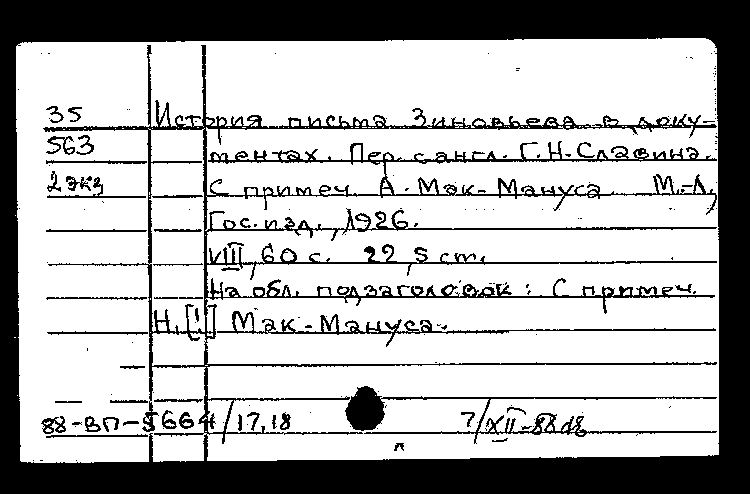 35 История письма Зиновьева в доку-
563 ментах. Пер. с англ. Г.Н. Славина.
2 экз С примеч. А. Мак-Мануса. М.-Л.,
Гос. изд., 1926.
VIII, 60 с. 22,5 cm.
На обл. подзаголовок: С примеч.
Н. [!] Мак-Мануса.
88-ВП-5664/17,18 7/XII-88